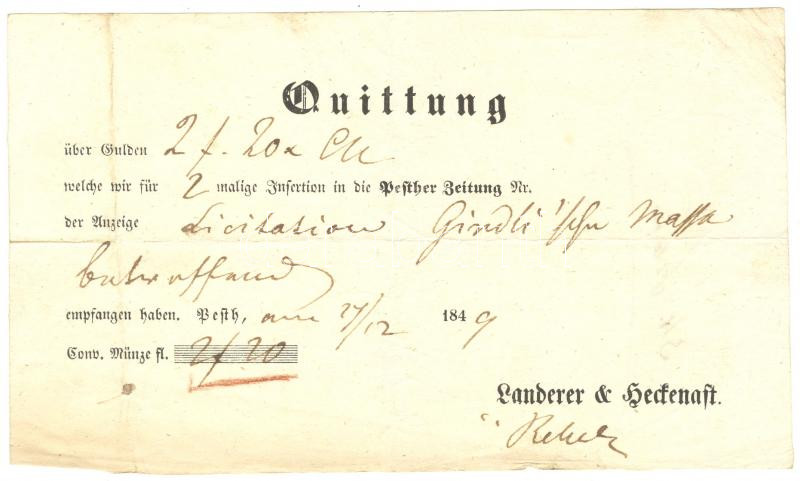 Quittung
über Gulden 2 f. 20x CM
welche wir für 2 malige Insertion in die Pesther Zeitung Nr.
der Anzeige Licitation Gindli'sche Massa
betreffend
empfangen haben. Pesth, am 7/12 1849
Conv. Münze fl. 2f 20
Landerer & Heckenast.